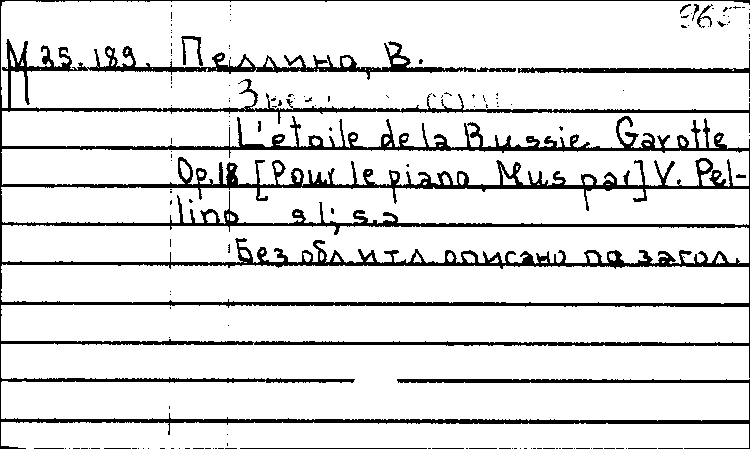 965
М 25.189. Пеллино, В.
L'etoile de la Russie. Gavotte
Op.18 [Pour le piano. Mus par] V. Pel-
lino s.l; s.a
Без обл. и т.л. описано по загол.